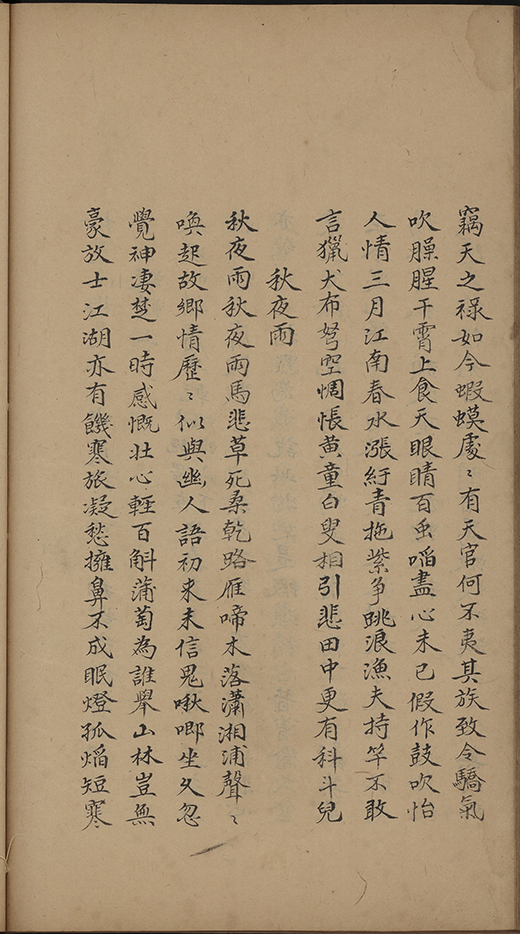 竊天之祿如今蝦蟆處〻有天官何不夷其族致令驕氣
吹臊腥干霄上食天眼睛百虫㗖盡心未已假作鼓吹怡
人情三月江南春水漲紆青拖紫争跳浪漁夫持竿不敢
言獵犬布弩空惆悵黄童白叟相引悲田中更有科斗兒
秋夜雨
秋夜雨秋夜雨馬悲草死桑乾路雁啼木落瀟湘浦聲〻
喚起故鄉情歷〻似與幽人語初来未信鬼啾唧坐久忽
覺神凄楚一時感慨壮心輕百斛蒲萄為誰舉山林豈無
豪放士江湖亦有饑寒旅凝愁擁鼻不成眠燈孤焰短寒